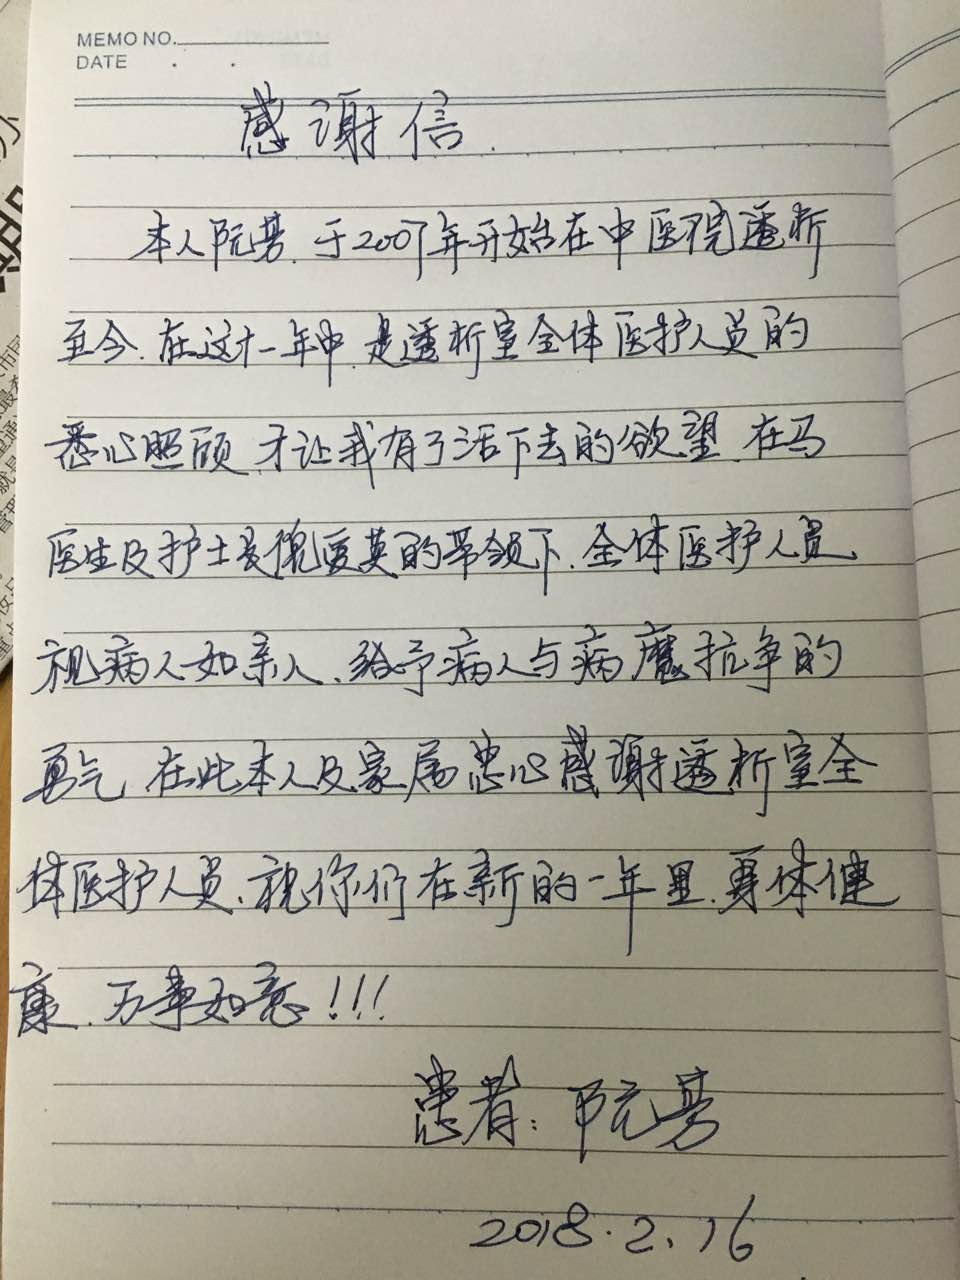 MEMO NO.
DATE . .
感谢信.
本人阮芳.于2007年开始在中医院透析
至今.在这十一年中.是透析室全体医护人员的
悉心照顾.才让我有了活下去的欲望.在马
医生及护士长槐爱英的带领下.全体医护人员
视病人如亲人、给予病人与病魔抗争的
勇气.在此本人及家属忠心感谢透析室全
体医护人员、祝你们在新的一年里.身体健
康、万事如意!!!
患者:阮芳
2018.2.16